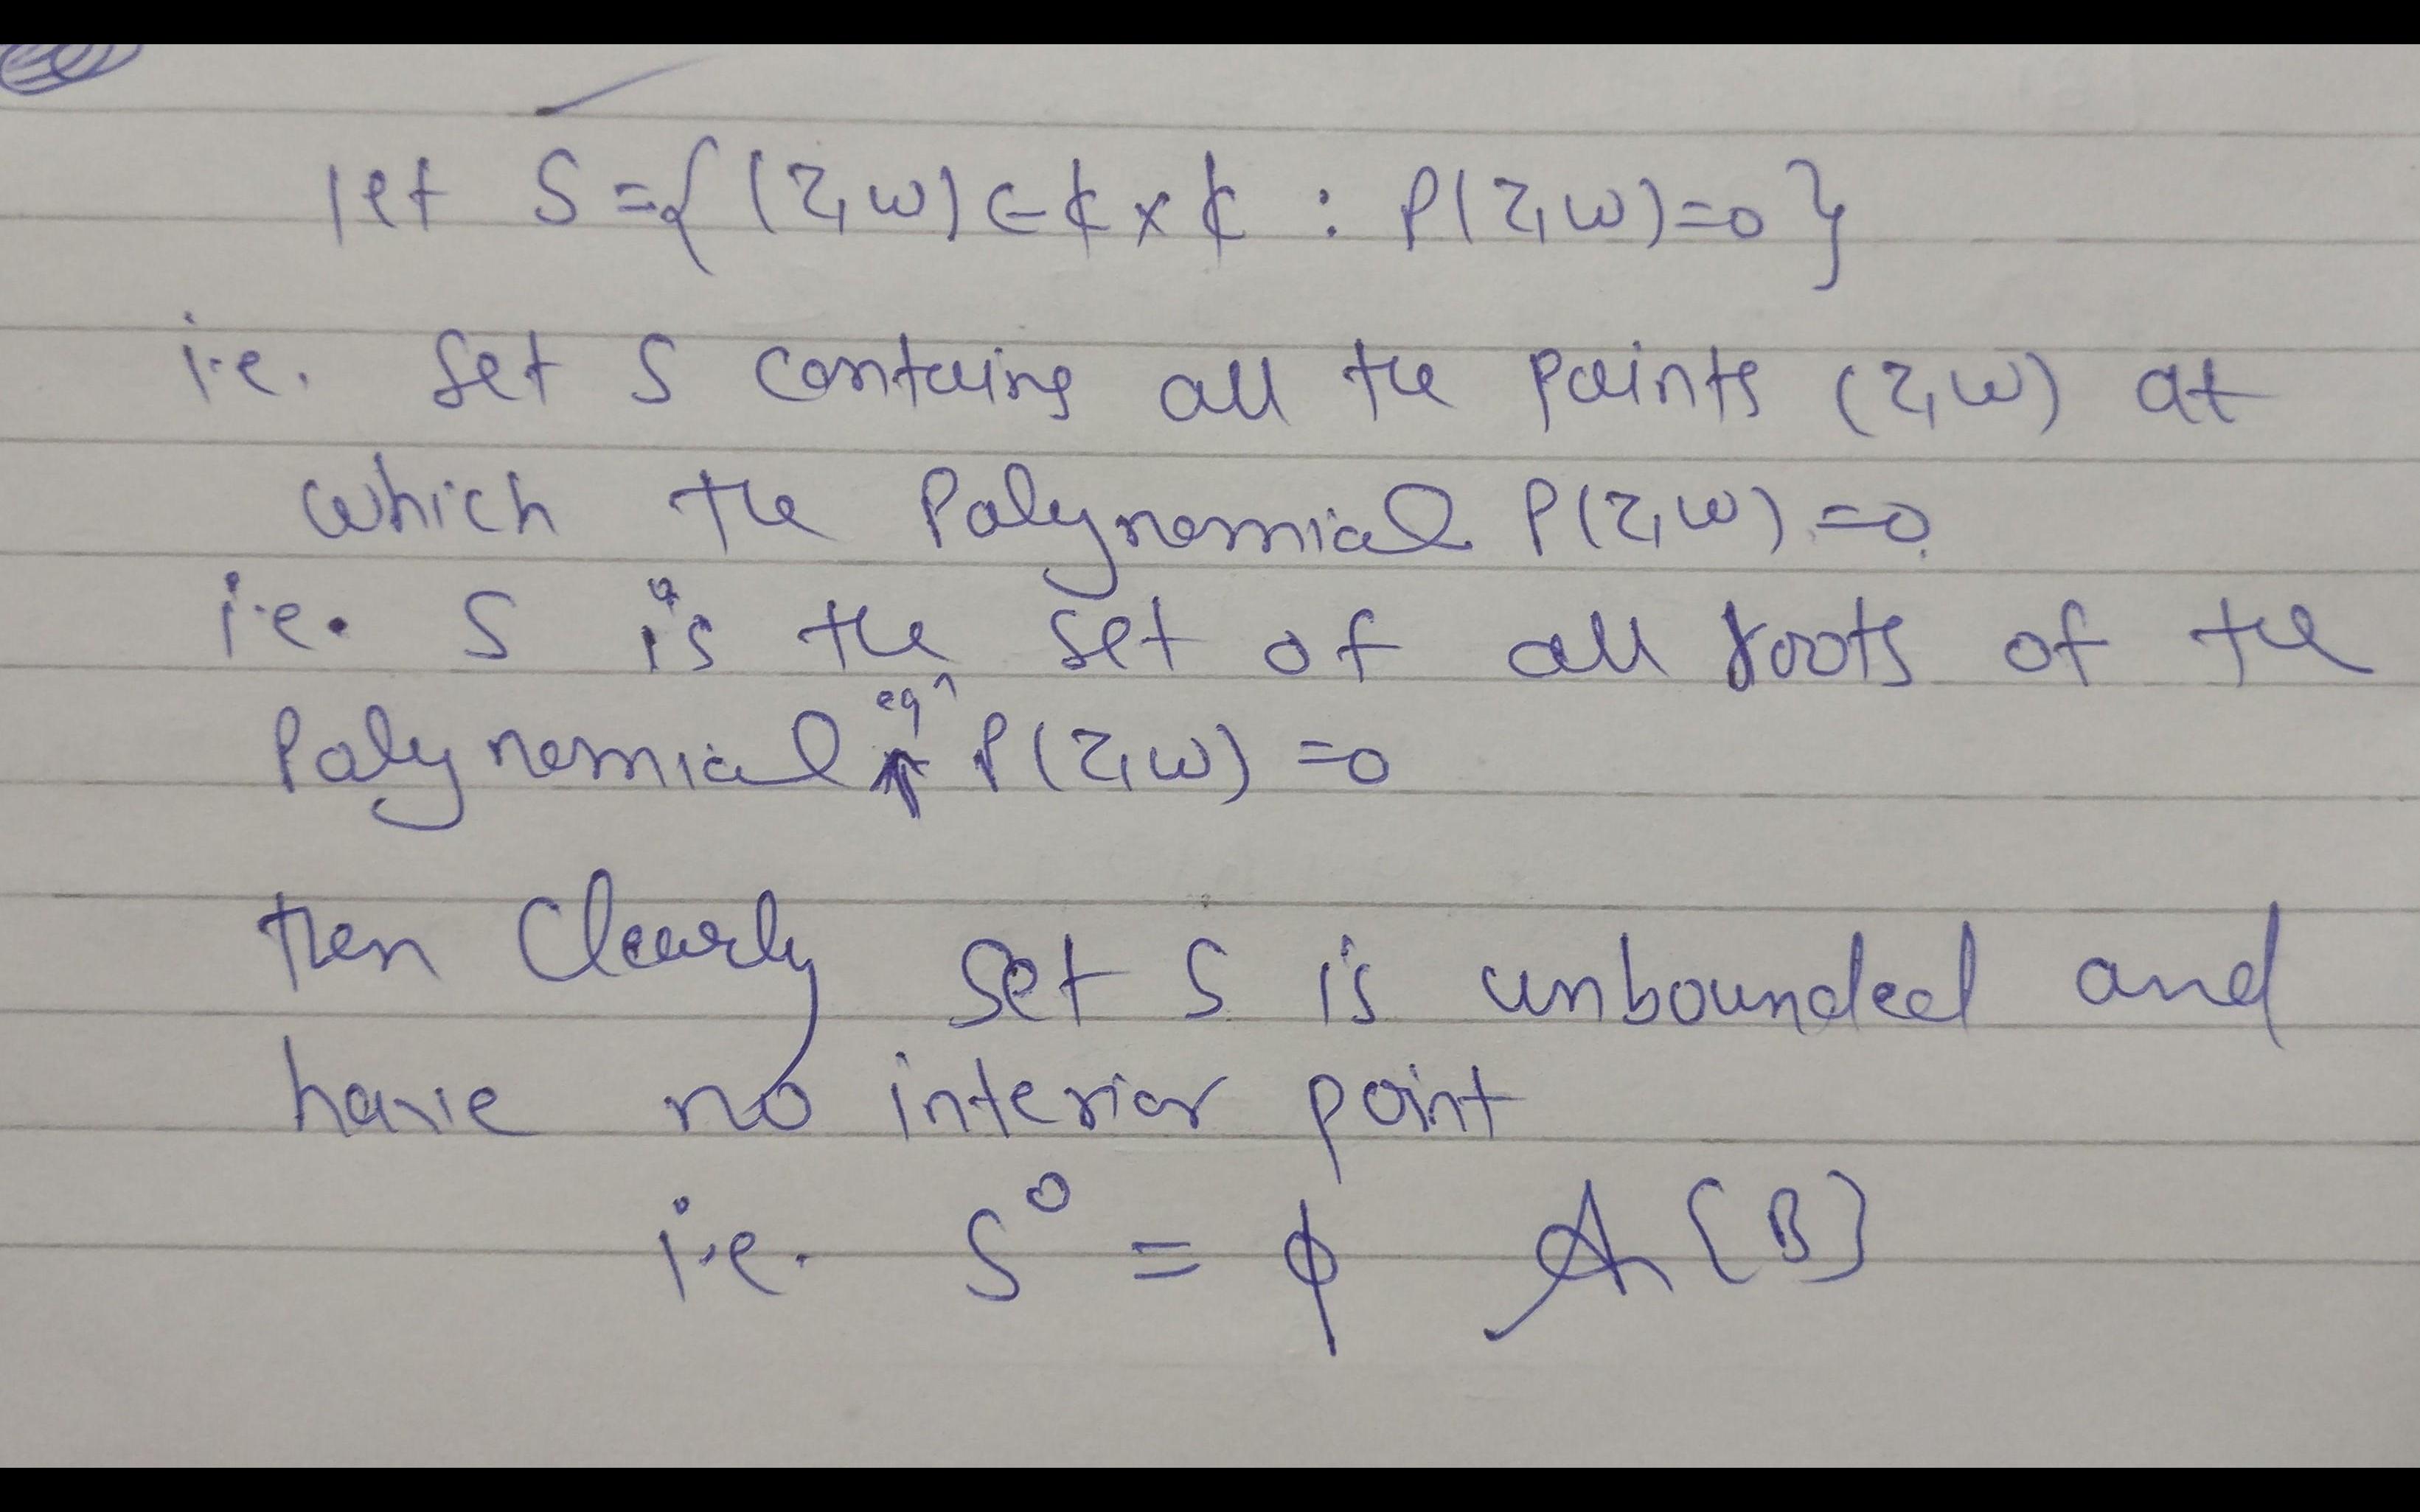 let S={(z,w)∈ℂ×ℂ : P(z,w)=0}
i.e. set S contains all the points (z,w) at
which the Polynomial P(z,w)=0.
i.e. S is the set of all roots of the
Polynomial eqⁿ P(z,w)=0
then Clearly set S is unbounded and
have no interior point
i.e. S⁰ = ϕ A {B}